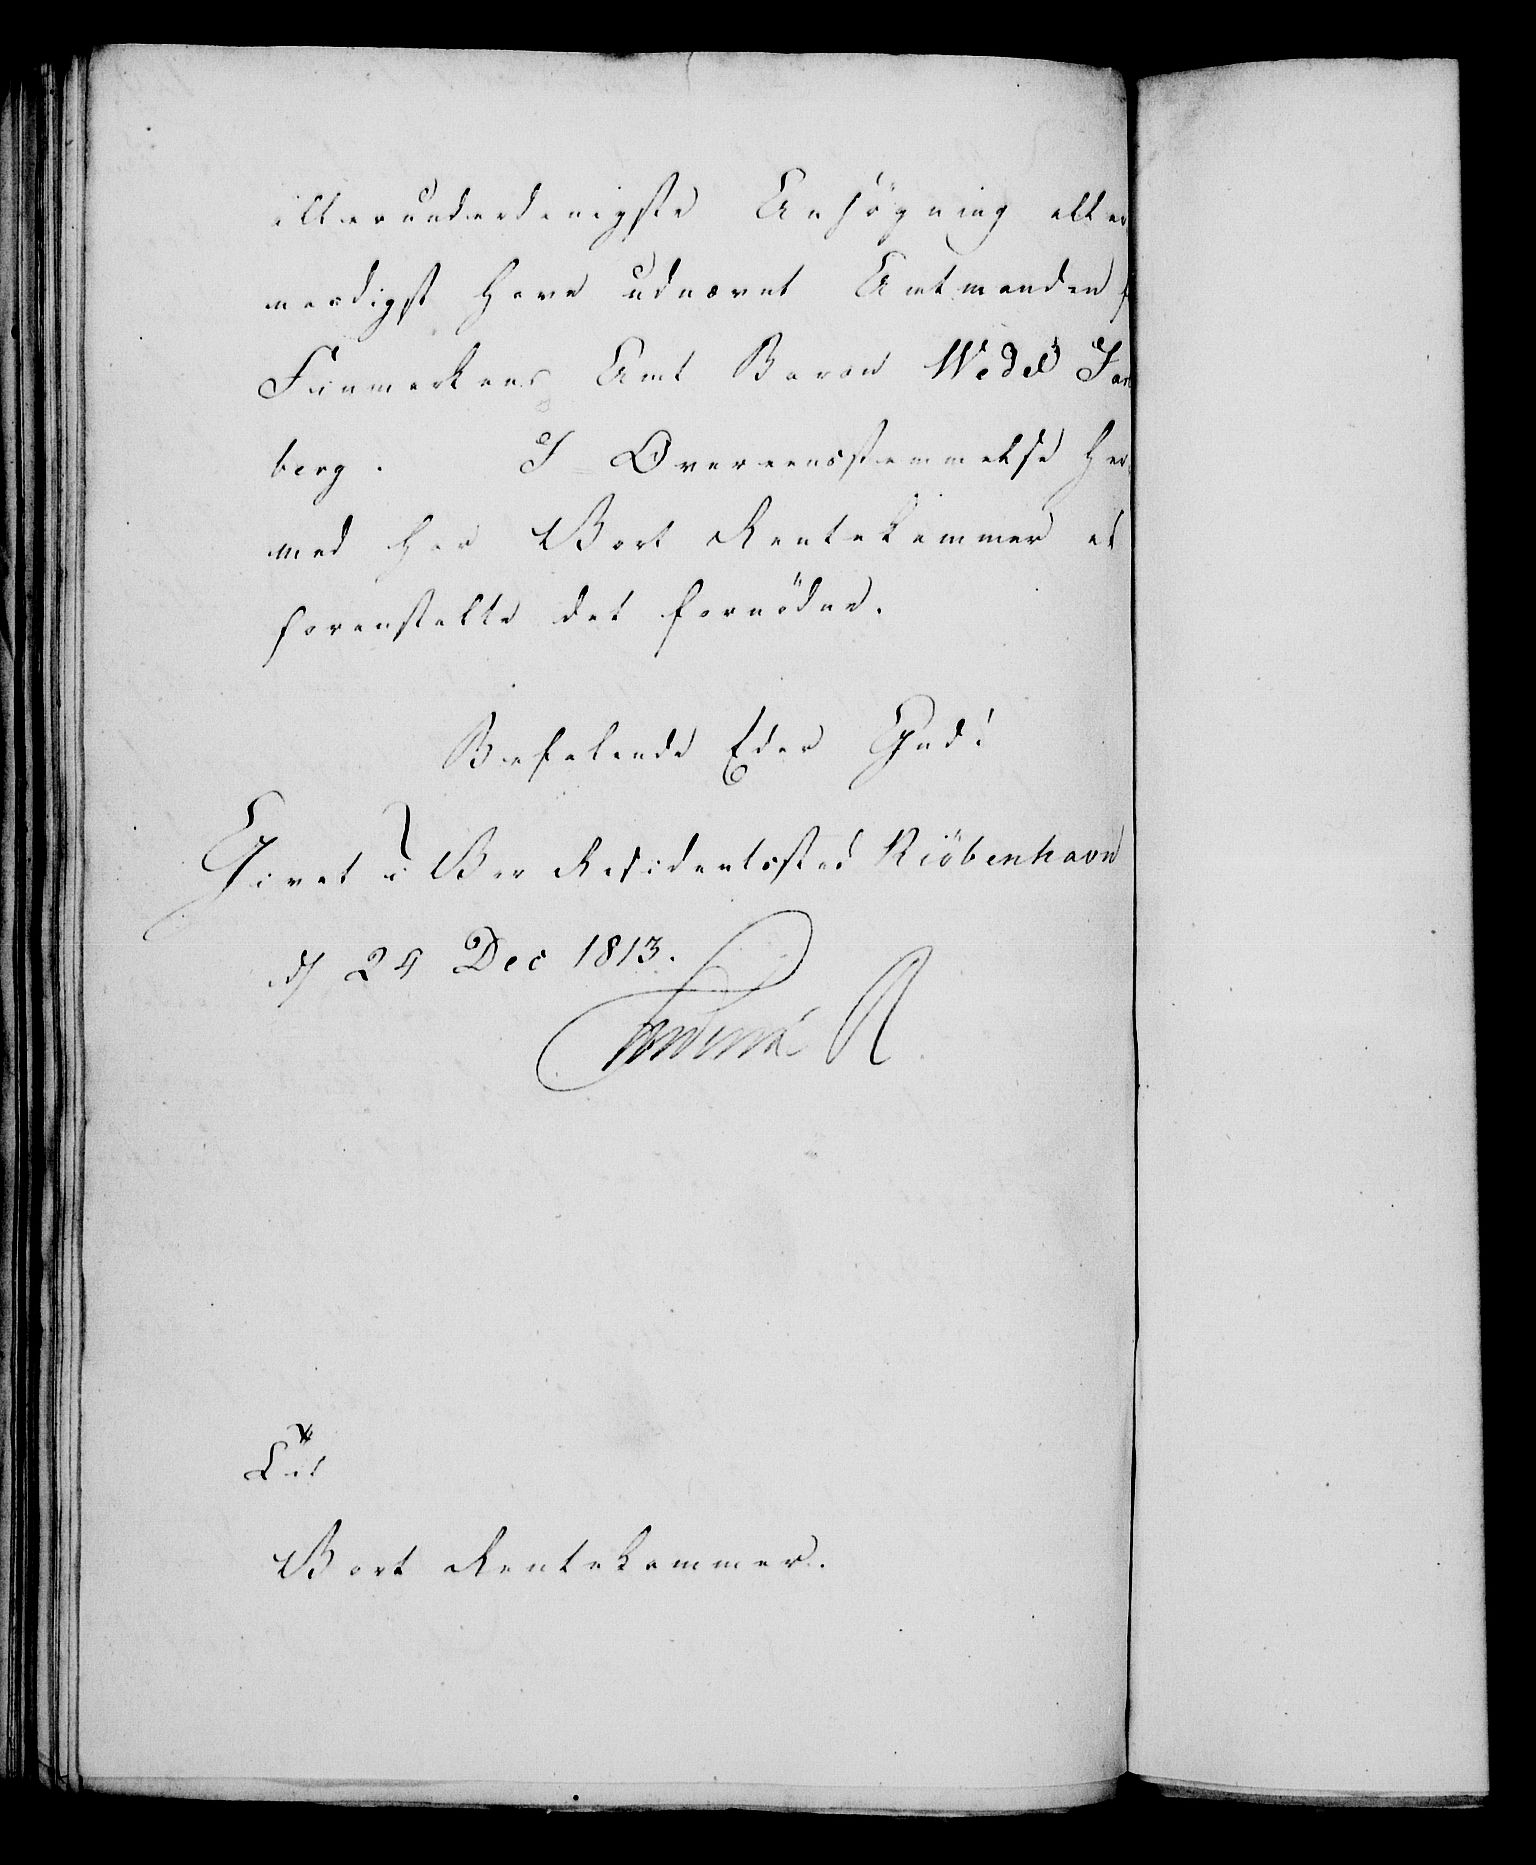 allerunderdanigste Ansögning aller
naadigst have udnævnt Amtmanden f
Finmarkens Amt Baron Wedel Jarls
berg. I Overeensstemmelse her
med har Vort Rentekammer at
foranstalte det fornödne.
Befalende Eder Gud!
Givet i Vor Residentsstad Kiöbenhavn
d/ 24 Dec 1813.
Frederik R
Til
Vort Rentekammer.